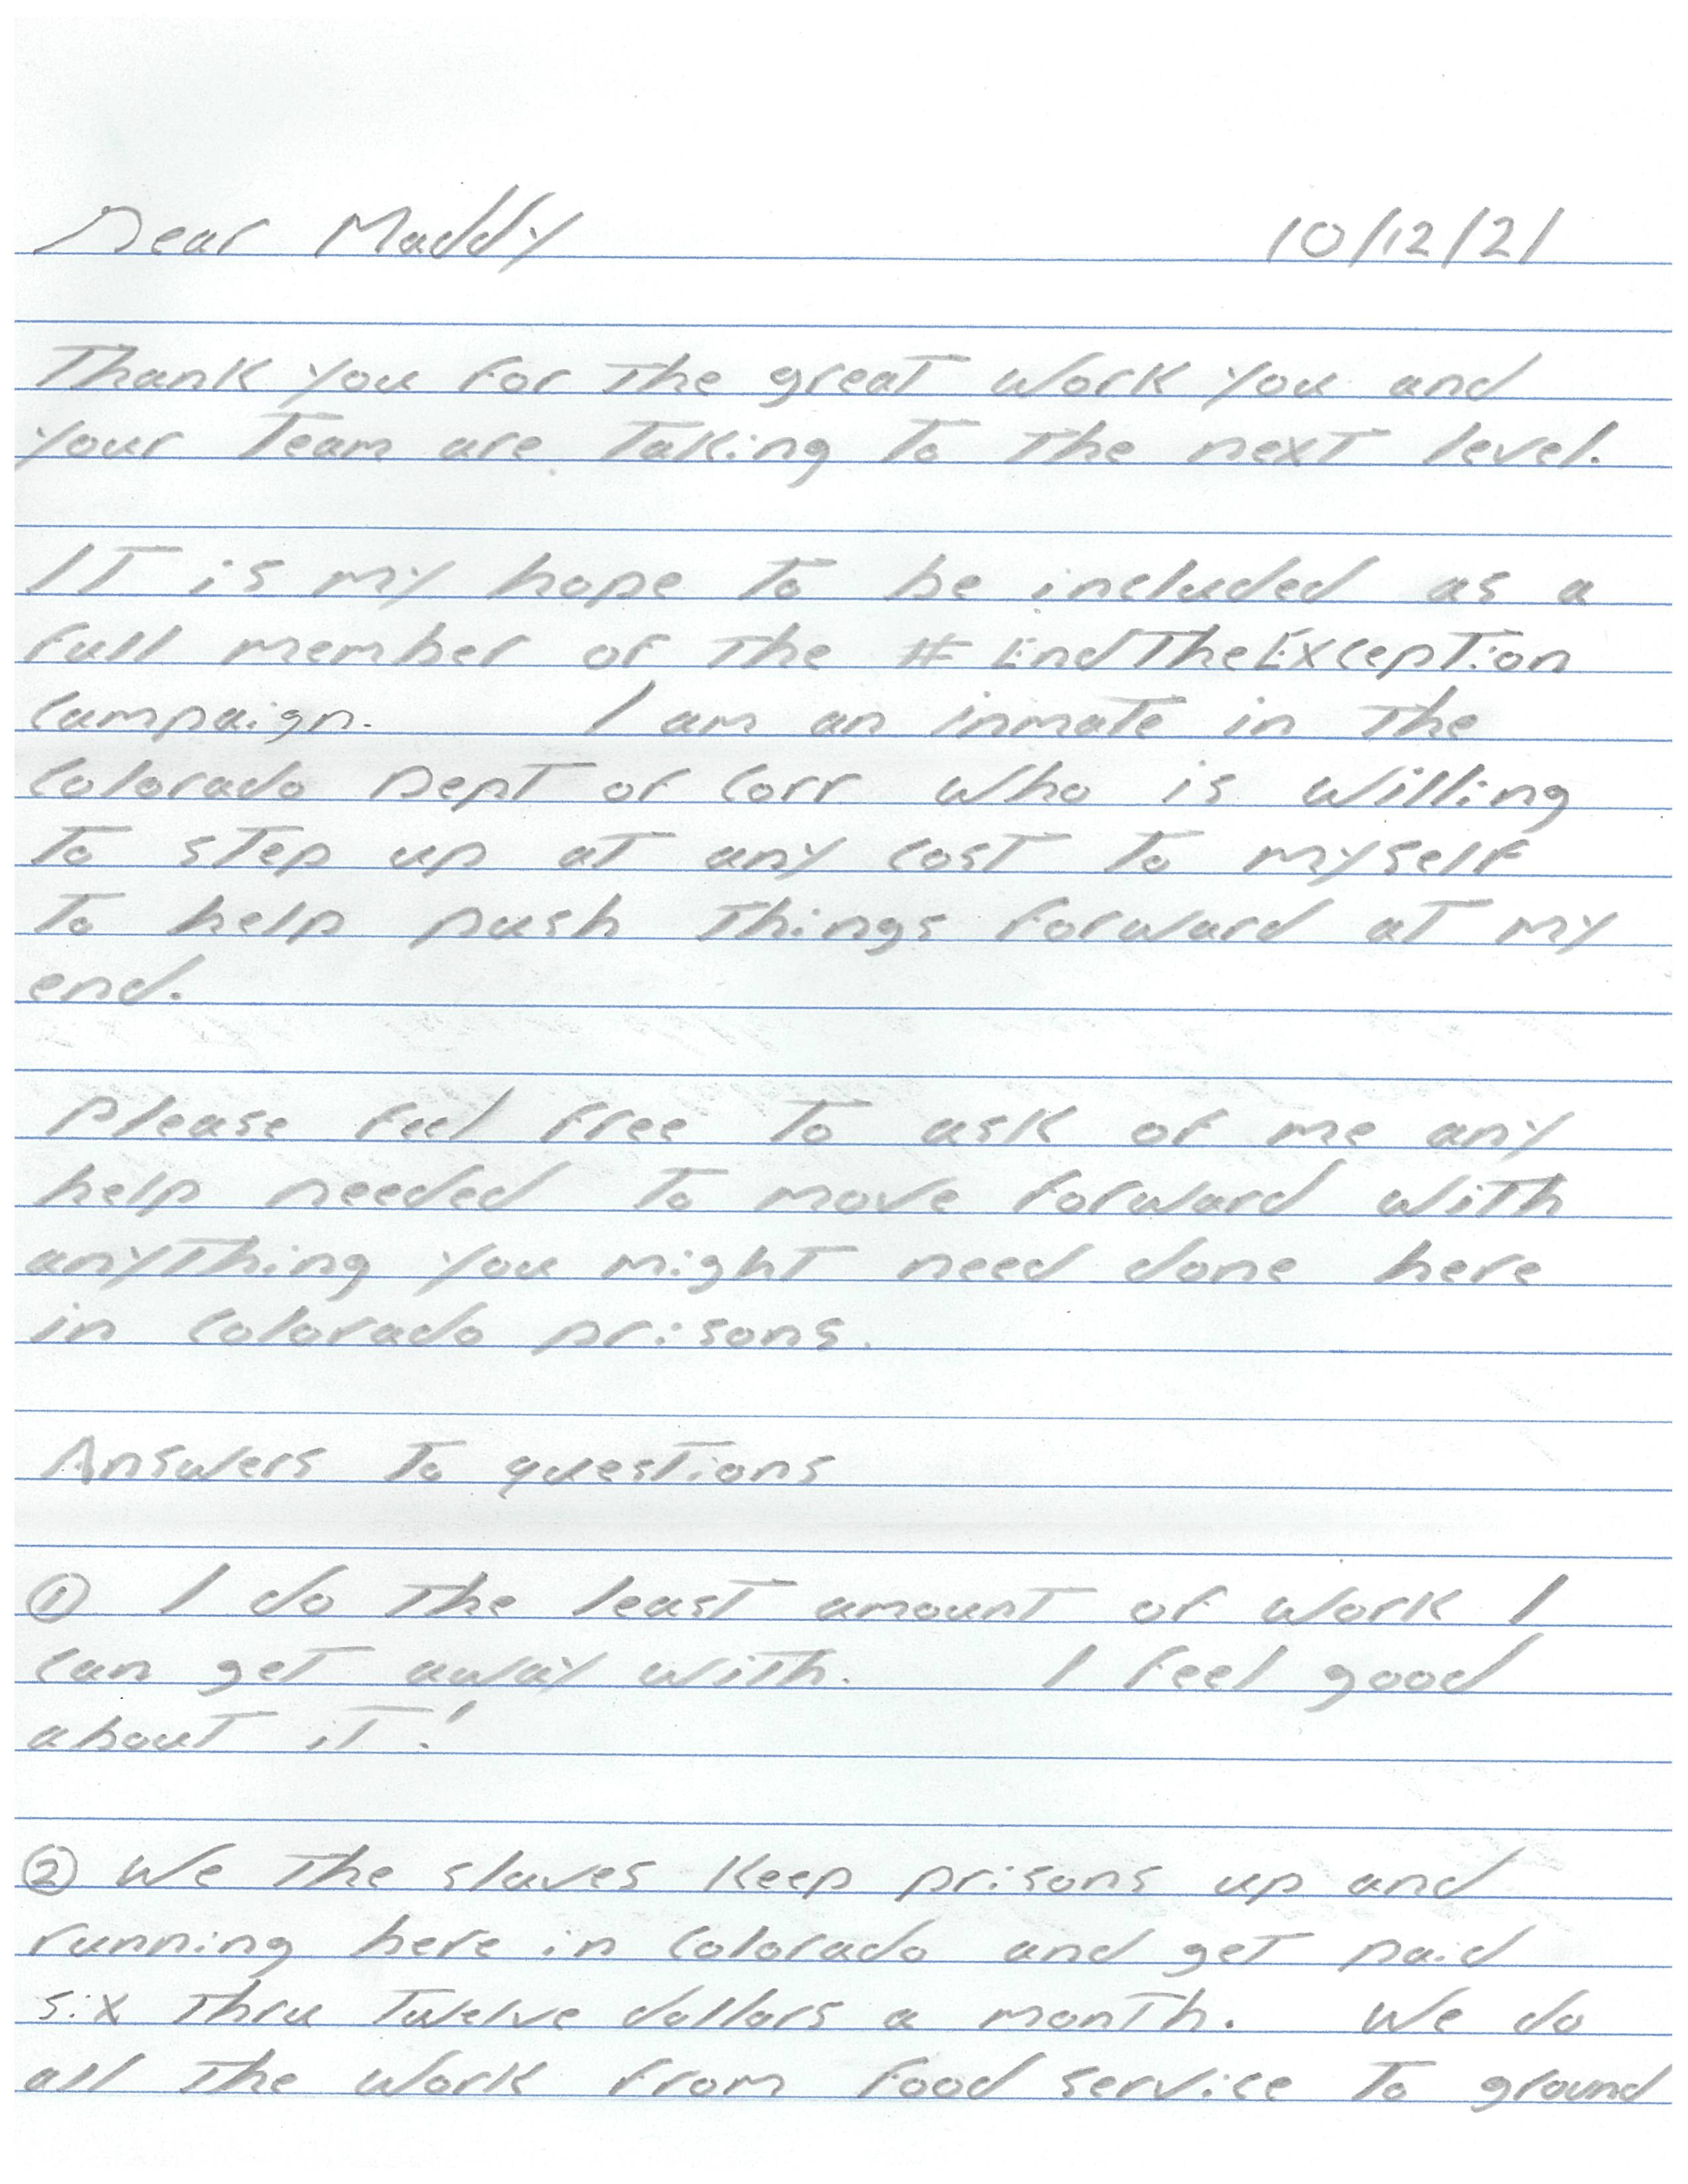 Dear Maddy 10/12/21
Thank you for the great work you and
your team are taking to the next level.
IT is my hope to be included as a
full member of the #EndTheException
campaign. I am an inmate in the
Colorado Dept of Corr who is willing
to step up at any cost to myself
to help push things forward at my
end.
Please feel free to ask of me any
help needed to move forward with
anything you might need done here
in Colorado prisons.
Answers to questions
① I do the least amount of work I
can get away with. I feel good
about it!
② We the slaves keep prisons up and
running here in Colorado and get paid
six thru twelve dollars a month. We do
all the work from food service to ground